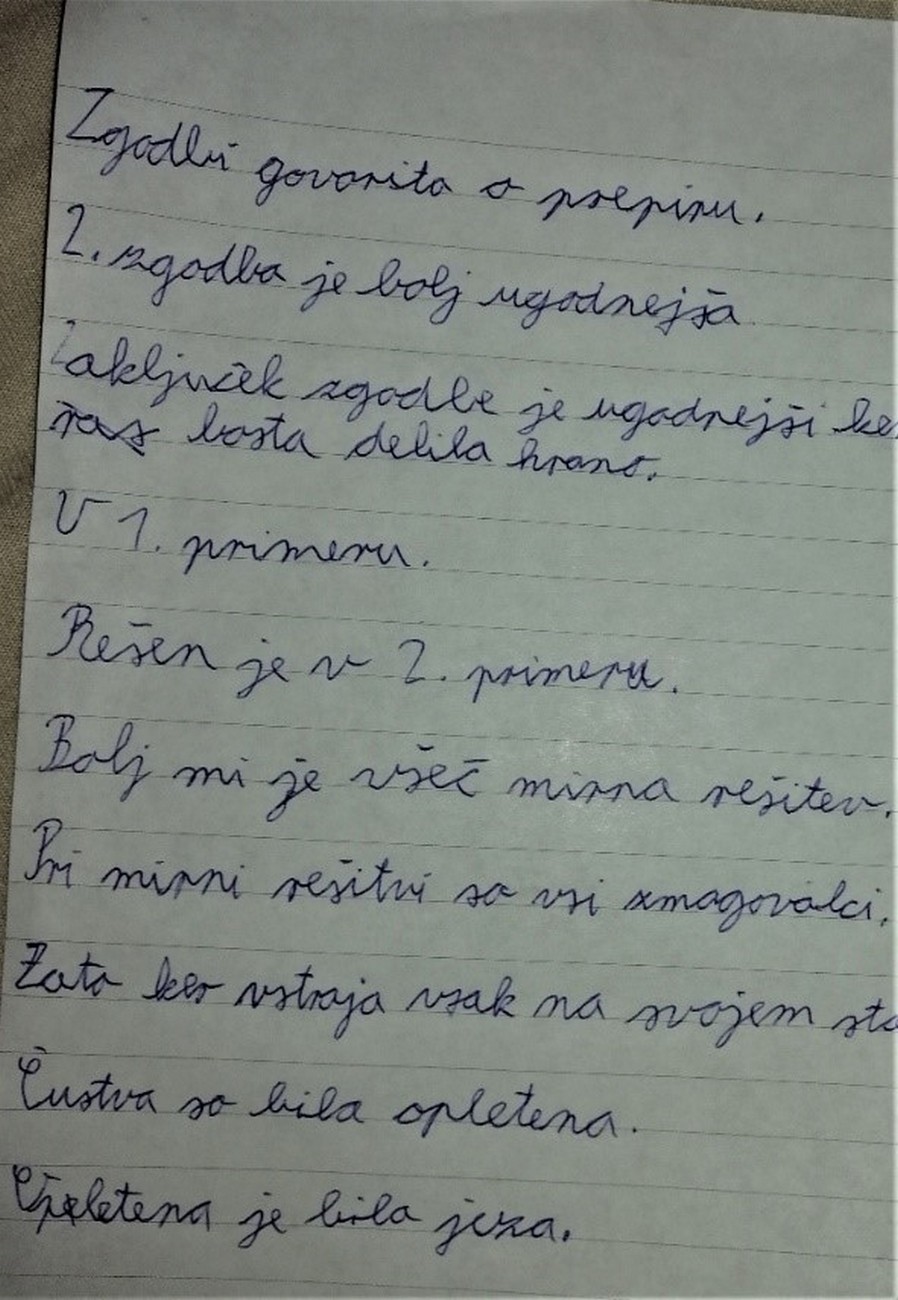 Zgodbi govorita o prepiru.
2. zgodba je bolj ugodnejša
Zaključek zgodbe je ugodnejši ker
bosta delila hrano.
V 1. primeru.
Rešen je v 2. primeru.
Bolj mi je všeč mirna rešitev.
Pri mirni rešitvi so vsi zmagovalci.
Zato ker vstraja vsak na svojem
Čustva so bila opletena.
je bila jeza.